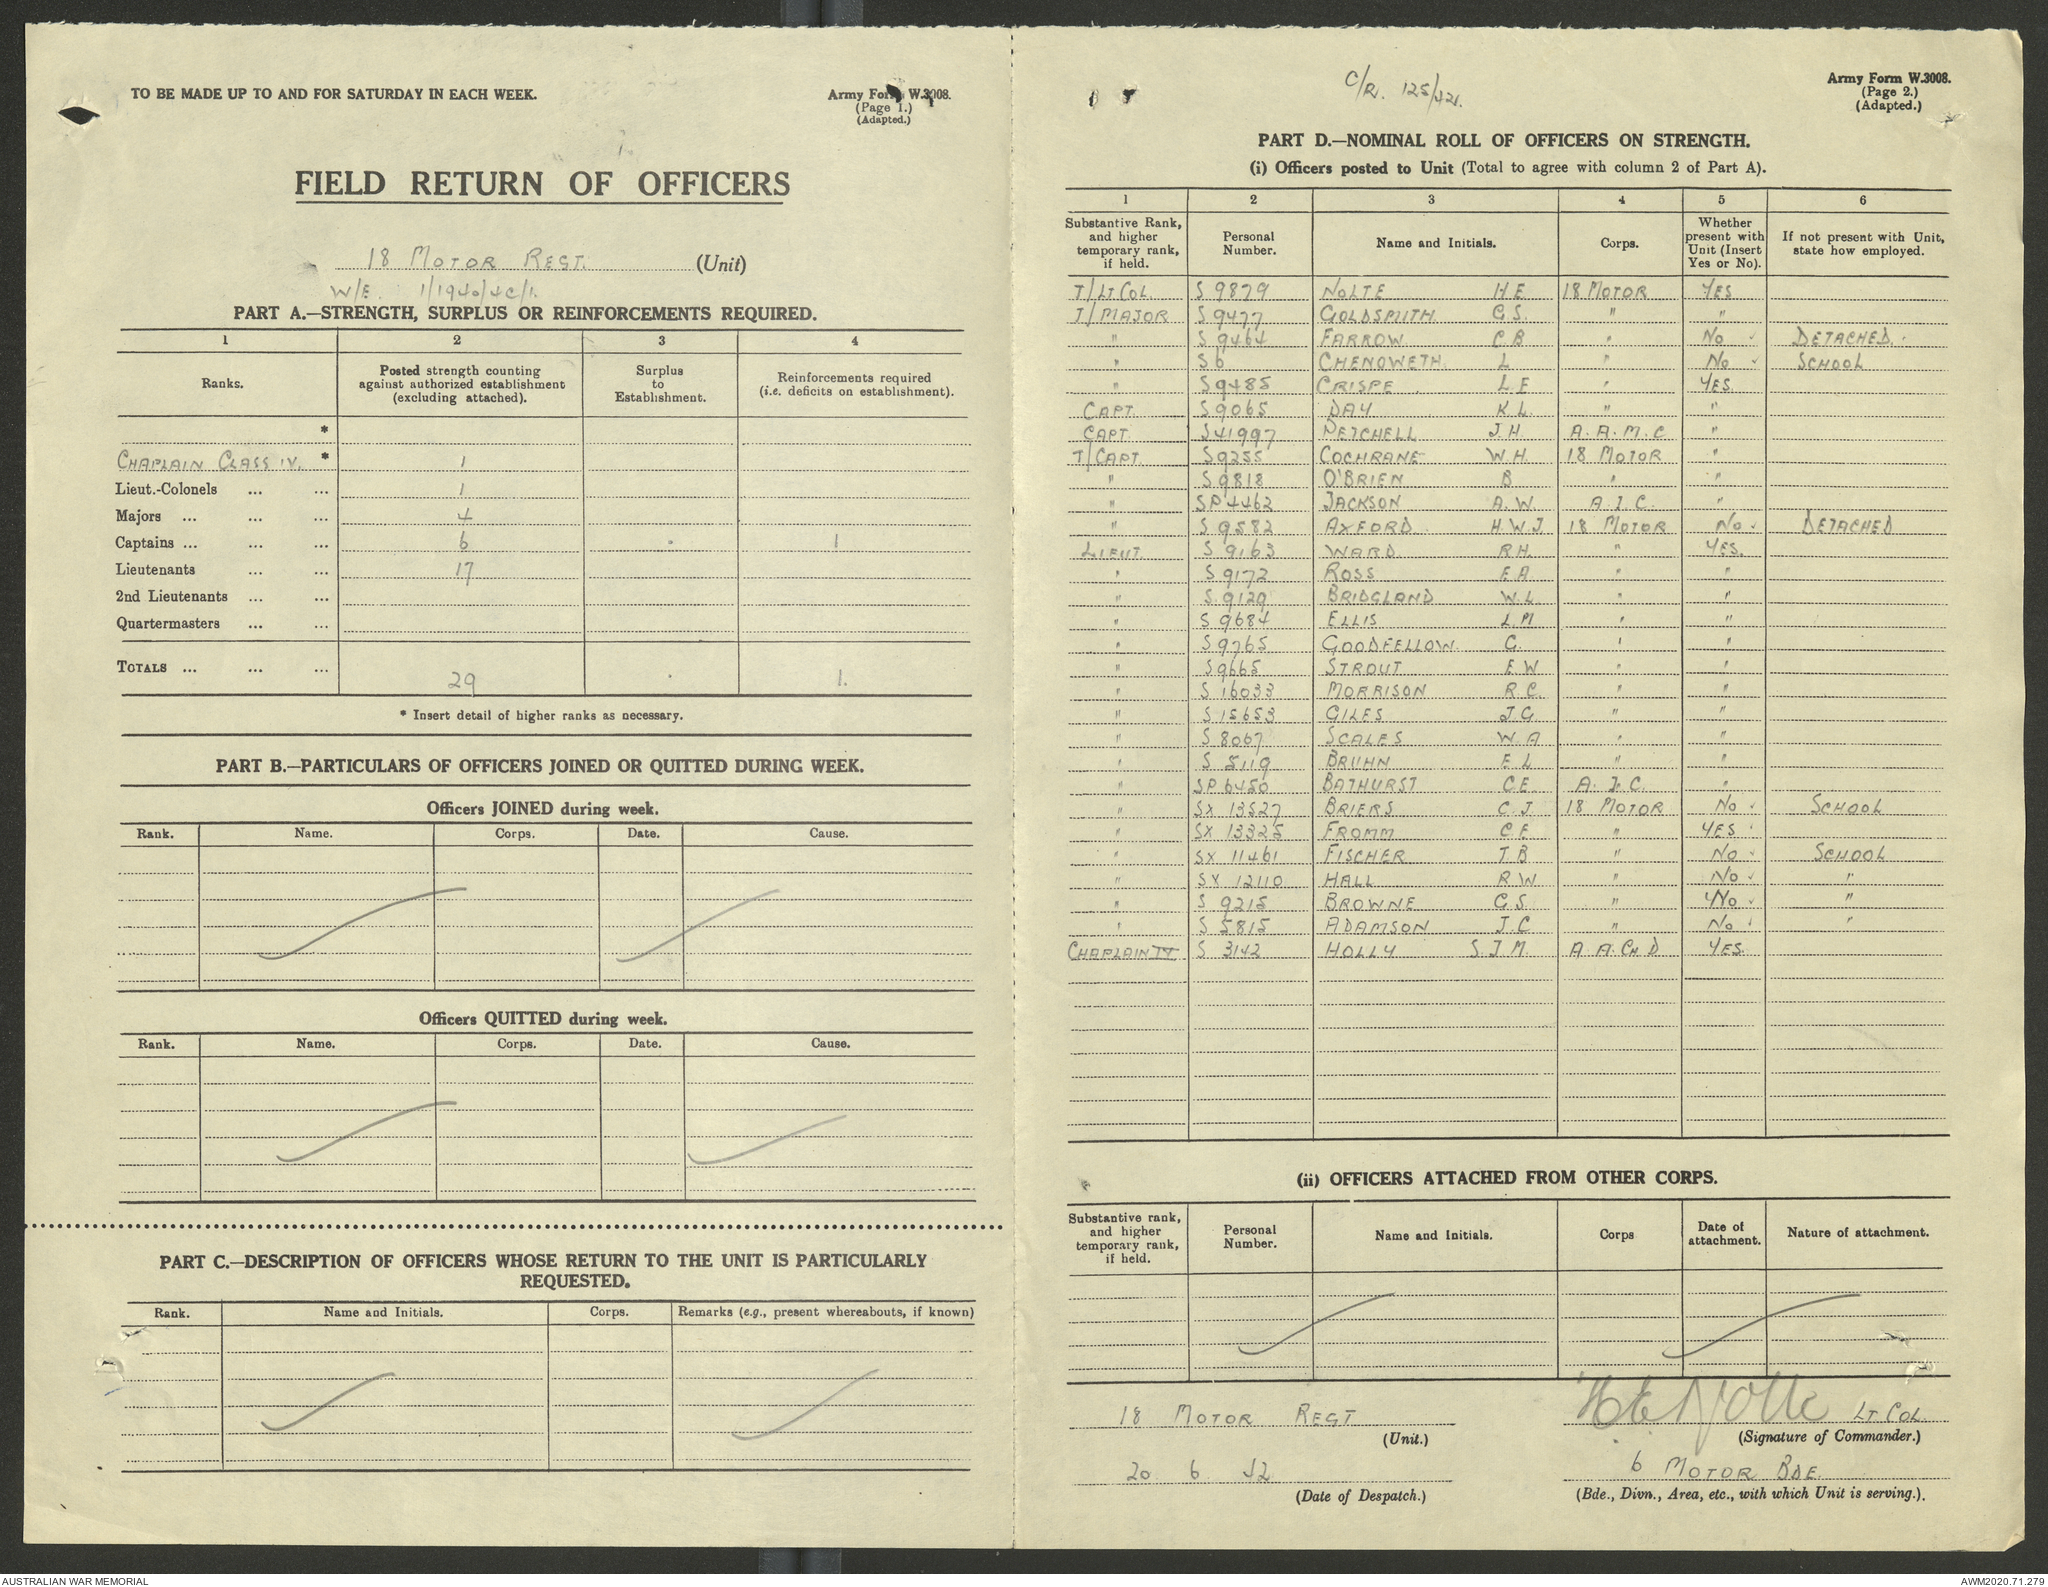 TO BE MADE UP TO AND FOR SATURDAY IN EACH WEEK.
Army Form W.3008.
(Page 1.)
(Adapted.)
FIELD RETURN OF OFFICERS
18 MOTOR REGT. (Unit)
W/E. 1/1940/4C/1.
PART A.—STRENGTH, SURPLUS OR REINFORCEMENTS REQUIRED.
1 2 3 4
Ranks. Posted strength counting against authorized establishment (excluding attached). Surplus to Establishment. Reinforcements required (i.e. deficits on establishment).
*
CHAPLAIN CLASS IV. * 1
Lieut.-Colonels ... ... 1
Majors ... ... ... 4
Captains ... ... ... 6 1
Lieutenants ... ... 17
2nd Lieutenants ... ...
Quartermasters ... ...
TOTALS ... ... ... 29 1.
* Insert detail of higher ranks as necessary.
PART B.—PARTICULARS OF OFFICERS JOINED OR QUITTED DURING WEEK.
Officers JOINED during week.
Rank. Name. Corps. Date. Cause.
Officers QUITTED during week.
Rank. Name. Corps. Date. Cause.
PART C.—DESCRIPTION OF OFFICERS WHOSE RETURN TO THE UNIT IS PARTICULARLY
REQUESTED.
Rank. Name and Initials. Corps. Remarks (e.g., present whereabouts, if known)
Army Form W.3008.
(Page 2.)
(Adapted.)
PART D.—NOMINAL ROLL OF OFFICERS ON STRENGTH.
(i) Officers posted to Unit (Total to agree with column 2 of Part A).
1 2 3 4 5 6
Substantive Rank, and higher temporary rank, if held. Personal Number. Name and Initials. Corps. Whether present with Unit (Insert Yes or No). If not present with Unit, state how employed.
T/LT COL. S 9879 NOLTE H E 18 MOTOR YES
T/MAJOR S 9477 GOLDSMITH G.S. " "
" S 9464 FARROW C B " No DETACHED.
" S 6 CHENOWETH. L " No SCHOOL
" S 9485 CRISPE L E " YES.
CAPT. S 9065 DAY K L. " "
CAPT. S 41997 PETCHELL J.H. A.A.M.C "
T/CAPT. S 9255 COCHRANE W.H. 18 MOTOR "
" S 9818 O'BRIEN B " "
" SP 4462 JACKSON A.W. A.I.C. "
" S 9582 AXFORD H.W.J. 18 MOTOR No DETACHED
LIEUT S 9163 WARD R H. " YES.
" S 9172 ROSS E A. " "
" S 9129 BRIDGLAND W.L " "
" S 9684 ELLIS L M " "
" S 9765 GOODFELLOW. G. " "
" S 9665 STROUT E W " "
" S 16033 MORRISON R C. " "
" S 15653 GILES J.G. " "
" S 8067 SCALES W A " "
" S 8119 BRUHN E L " "
" SP 6450 BATHURST C E A.I.C. "
" SX 13527 BRIERS C J 18 MOTOR No SCHOOL
" SX 13325 FROMM C E " YES
" SX 11461 FISCHER T B " No SCHOOL
" SX 12110 HALL R W " No "
" S 9215 BROWNE G S. " No "
" S 5815 ADAMSON J.C " No "
CHAPLAIN IV S 3142 HOLLY S J M. A A.CH D YES
(ii) OFFICERS ATTACHED FROM OTHER CORPS.
Substantive rank, and higher temporary rank, if held. Personal Number. Name and Initials. Corps Date of attachment. Nature of attachment.
18 MOTOR REGT
(Unit.)
H E Nolte LT COL.
(Signature of Commander.)
20 6 42
(Date of Despatch.)
6 MOTOR BDE.
(Bde., Divn., Area, etc., with which Unit is serving.).
AUSTRALIAN WAR MEMORIAL
AWM2020.71.279